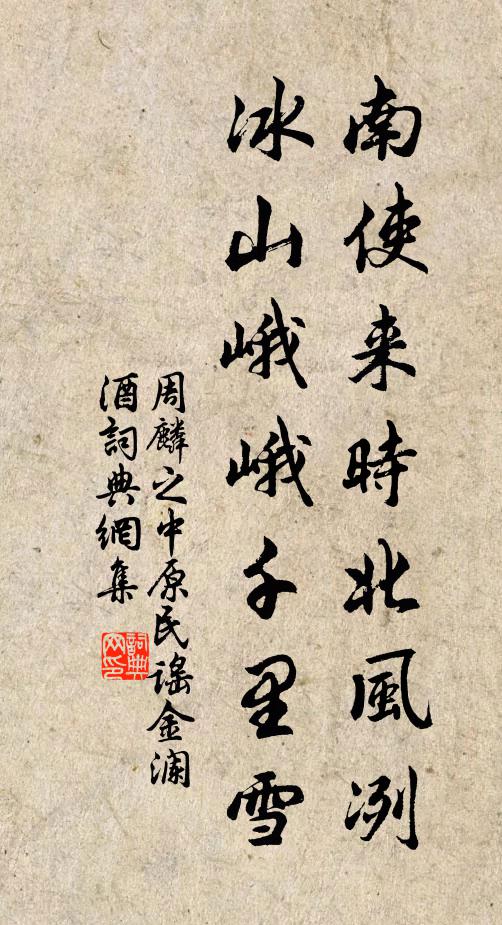 南使来時北風冽
冰山峨峨千里雪
周麟之中原民謠金瀾
酒詞典網集
詞典
网印